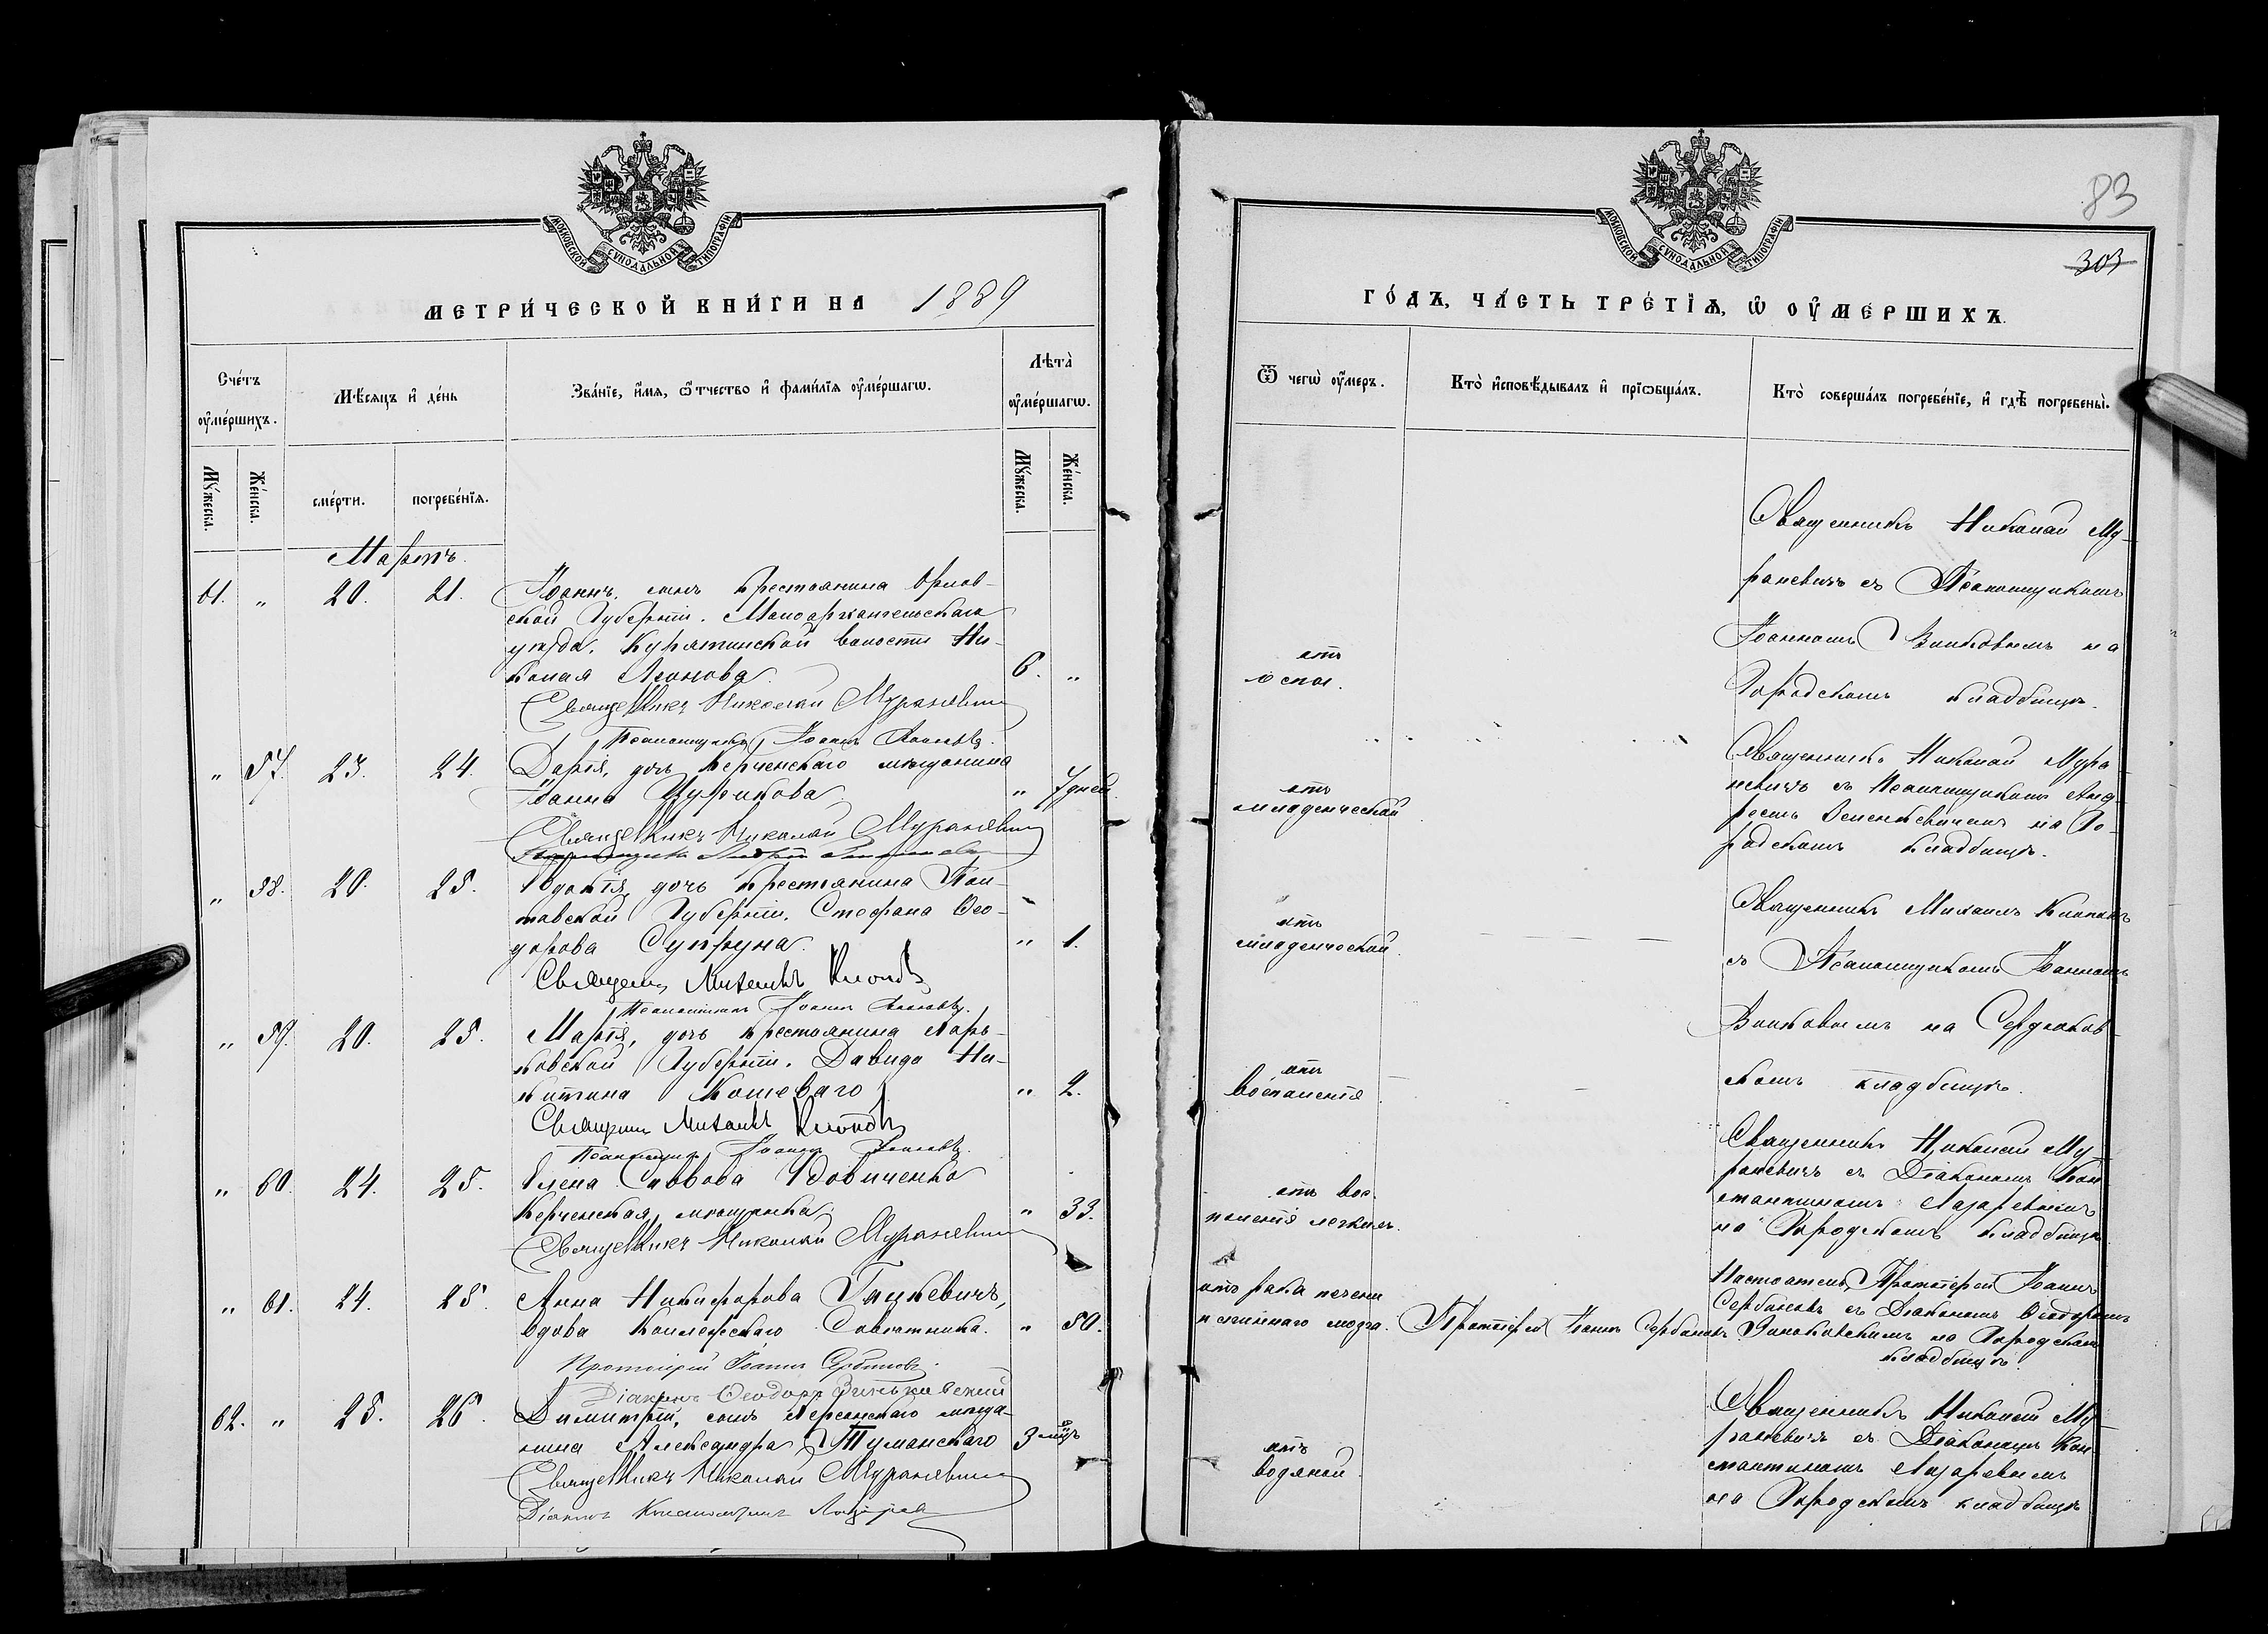 МОСКОВСКОЙ СУНОДАЛЬНОЙ ТИПОГРАФІИ
МЕТРИ́ЧЕСКОЙ КНИ́ГИ НА 1889
Сче́тъ ᲂу҆ме́ршихъ.
Мѣ́сяцъ и҆ де́нь
Зва́нїе, и҆́мя, ѻ҆́тчество и҆ фами́лїя ᲂу҆ме́ршагѡ.
Лѣта̀ ᲂу҆ме́ршагѡ.
Му́жеска.
Же́нска.
сме́рти.
погребе́нїя.
Му́жеска.
Же́нска.
Мартъ.
61. „ 20. 21. Іоаннъ, сынъ крестьянина Орлов-
ской Губерніи. Малоархангельскаго
уѣзда, Куракинской волости Ни-
колая Леонова. 6. „
Священникъ Николай Мураневичъ
Псаломщикъ Іоаннъ Волковъ.
„ 57. 23. 24. Дарія, дочь Керченскаго мѣщанина
Іоанна Цурикова. „ 7 дней.
Священникъ Николай Мураневичъ
„ 58. 20. 25. Евдокія, дочь крестьянина Пол-
тавской Губерніи. Стефана Ѳео-
дорова Супруна. „ 1.
Священ. Михаилъ Клоповъ
Псаломщикъ Іоаннъ Волковъ.
„ 59. 20. 25. Марія, дочь крестьянина Харь-
ковской Губерніи. Давида Ни-
китина Кошеваго „ 2.
Священник Михаилъ Клоповъ
Псаломщикъ Іоаннъ Волковъ.
„ 60. 24. 25. Елена Саввова Удовиченко
Керченская мѣщанка. „ 33.
Священникъ Николай Мураневичъ
„ 61. 24. 25. Анна Никифорова Гацкевичъ,
вдова Коллежскаго Совѣтника. „ 50.
Протоіерей Іоаннъ Сербиновъ.
Діаконъ Ѳеодоръ Зиньковскій
62. „ 25. 26. Димитрій, сынъ Херсонскаго мѣща-
нина Александра Туманскаго 3 мѣс.
Священникъ Николай Мураневичъ
Діаконъ Константинъ Лазаревъ
83
303
МОСКОВСКОЙ СУНОДАЛЬНОЙ ТИПОГРАФІИ
ГО́ДЪ, ЧА́СТЬ ТРЕ́ТЇѦ, Ѡ҆ ОУ҆МЕ́РШИХЪ.
Ѿ чегѡ̀ ᲂу҆́меръ.
Кто̀ и҆сповѣ́дывалъ и҆ прїѡбща́лъ.
Кто̀ соверша́лъ погребе́нїе, и҆ гдѣ̀ погребены̀.
отъ
оспы.
Священникъ Николай Му-
раневичъ съ Псаломщикомъ
Іоанномъ Волковымъ на
Городскомъ кладбищѣ.
отъ
младенческой
Священникъ Николай Мура-
невичъ съ Псаломщикомъ Анд-
реемъ на Го-
родскомъ кладбищѣ.
отъ
младенческой
Священникъ Михаилъ Клоповъ
съ Псаломщикомъ Іоанномъ
Волковымъ на Сердюков-
скомъ кладбищѣ.
отъ
воспаленія
отъ вос-
паленія легкихъ.
Священникъ Николай Му-
раневичъ съ Діакономъ Кон-
стантиномъ Лазаревымъ
на Городскомъ кладбищѣ
отъ рака печени
и спиннаго мозга. Протоіерей Іоаннъ Сербиновъ.
Настоятель Протоіерей Іоаннъ
Сербиновъ съ Діакономъ Ѳеодоромъ
Зиньковскимъ на Городскомъ
кладбищѣ.
отъ
водяной.
Священникъ Николай Му-
раневичъ съ Діакономъ Кон-
стантиномъ Лазаревымъ
на Городскомъ кладбищѣ